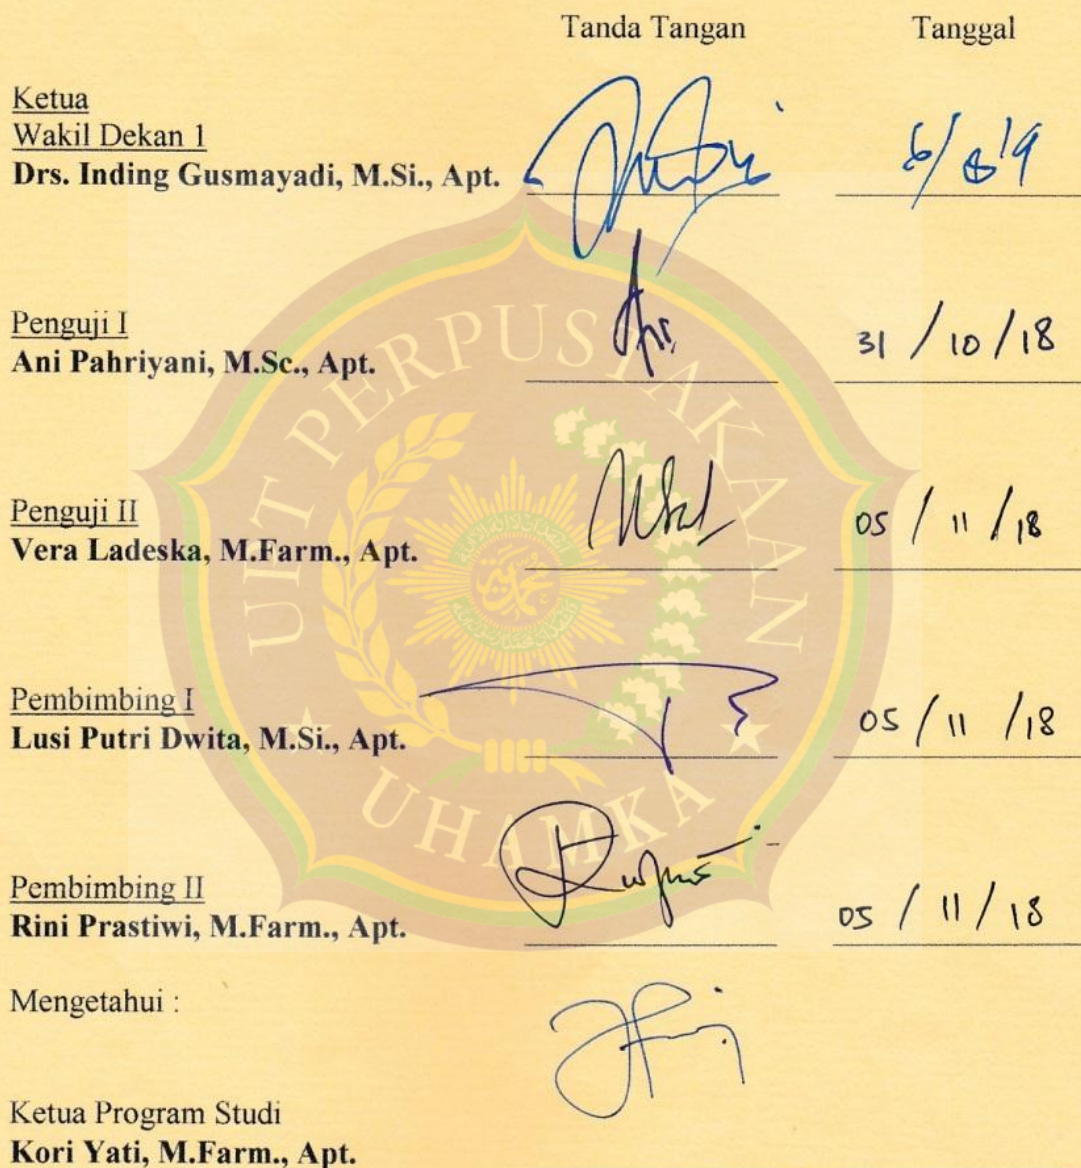 Tanda Tangan Tanggal
Ketua
Wakil Dekan 1
Drs. Inding Gusmayadi, M.Si., Apt.
Penguji I
Ani Pahriyani, M.Sc., Apt. 31 / 10 / 18
Penguji II
Vera Ladeska, M.Farm., Apt. 05 / 11 / 18
Pembimbing I
Lusi Putri Dwita, M.Si., Apt. 05 / 11 / 18
Pembimbing II
Rini Prastiwi, M.Farm., Apt. 05 / 11 / 18
Mengetahui :
Ketua Program Studi
Kori Yati, M.Farm., Apt.
UPT PERPUSTAKAAN
UHAMKA